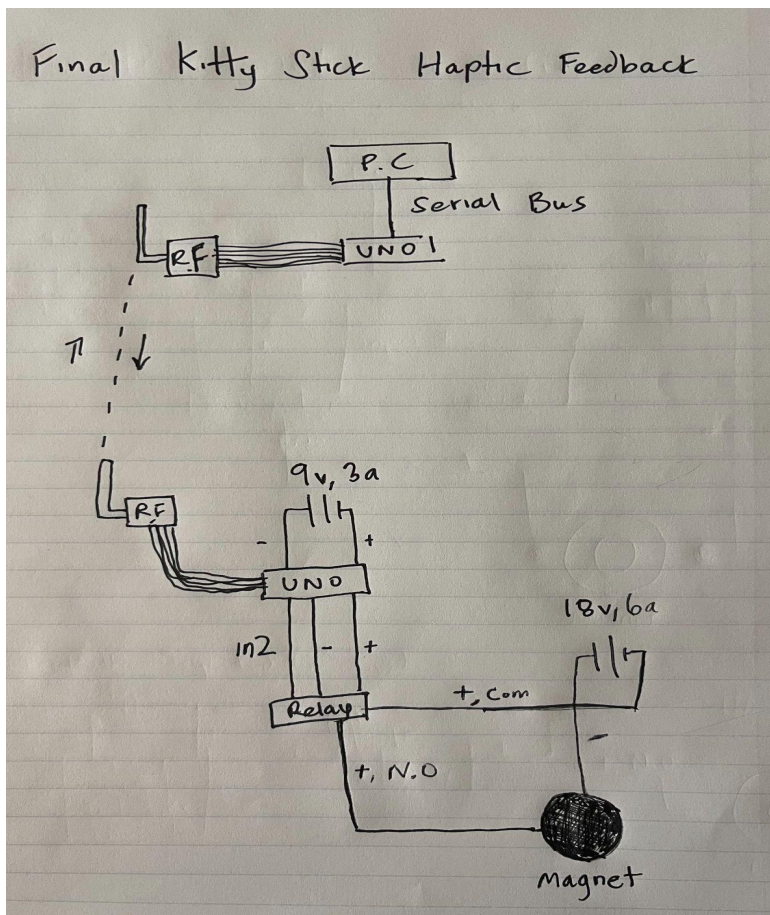 Final Kitty Stick Haptic Feedback
P.C
Serial Bus
R.F
UNO 1
9v, 3a
R.F
- +
UNO
18v, 6a
in2 - +
+, Com
Relay
-
+, N.O
Magnet